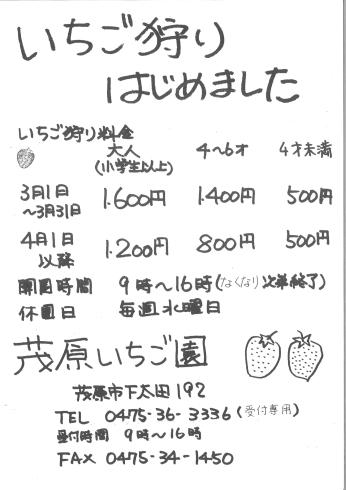 いちご狩り
はじめました
いちご狩り料金
大人 4〜6才 4才未満
(小学生以上)
3月1日
〜3月31日 1.600円 1.400円 500円
4月1日
以降 1.200円 800円 500円
開園時間 9時〜16時(なくなり次第終了)
休園日 毎週水曜日
茂原いちご園
茂原市下太田192
TEL 0475-36-3336(受付専用)
受付時間 9時〜16時
FAX 0475-34-1450